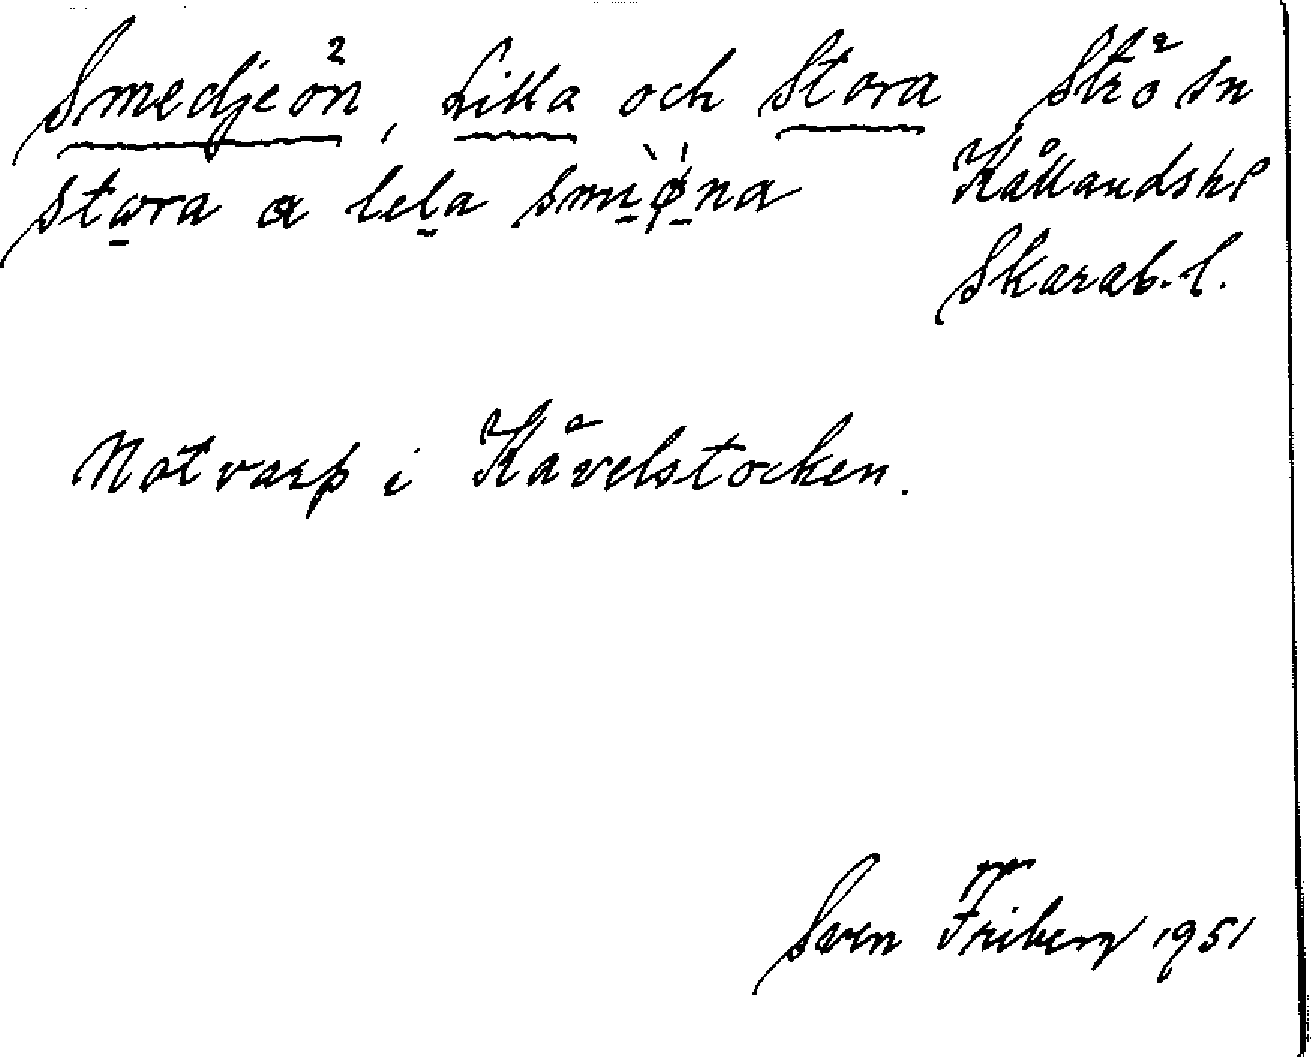 Smedjeön, Lilla och Stora Strö sn
stora a lela smìǿna Kållands hd
Skarab. l.
Notvarp i Kävelstocken.
Sven Friberg 1951